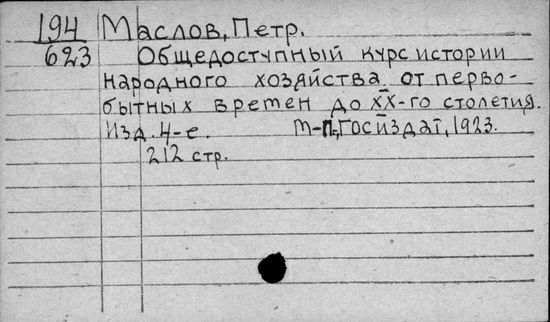 194 Маслов, Петр.
623 Общедоступный курс истории
народного хозяйства от перво-
бытных времен до XX-го столетия.
Изд. 4-е. М-П., Госиздат, 1923.
212 стр.